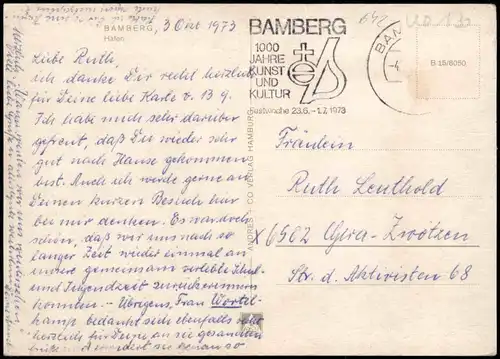 BAMBERG, 3 Okt 1973
Hafen
Liebe Ruth,
ich danke Dir recht herzlich
für Deine liebe Karte v. 13 9.
Ich habe mich sehr darüber
gefreut, daß Du wieder sehr
gut nach Hause gekommen
bist. Auch ich werde gerne an
Deinen kurzen Besuch hier
bei mir denken. Es war doch
schön, daß wir uns nach so
langer Zeit wieder einmal an
unsere gemeinsam verlebte Schul-
und Jugendzeit zurückerinnern
konnten. – Übrigens, Frau Wortel-
kamp bedankt sich ebenfalls recht
herzlich für Deine an sie gesandten
BAMBERG
1000
JAHRE
KUNST
UND
KULTUR
Festwoche 23.6.-1.7.1973
BAM
B-15/8050
ANDRES CO VERLAG HAMBURG
Fräulein
Ruth Leuthold
X 6502 Gera-Zwötzen
Str. d. Aktivisten 68